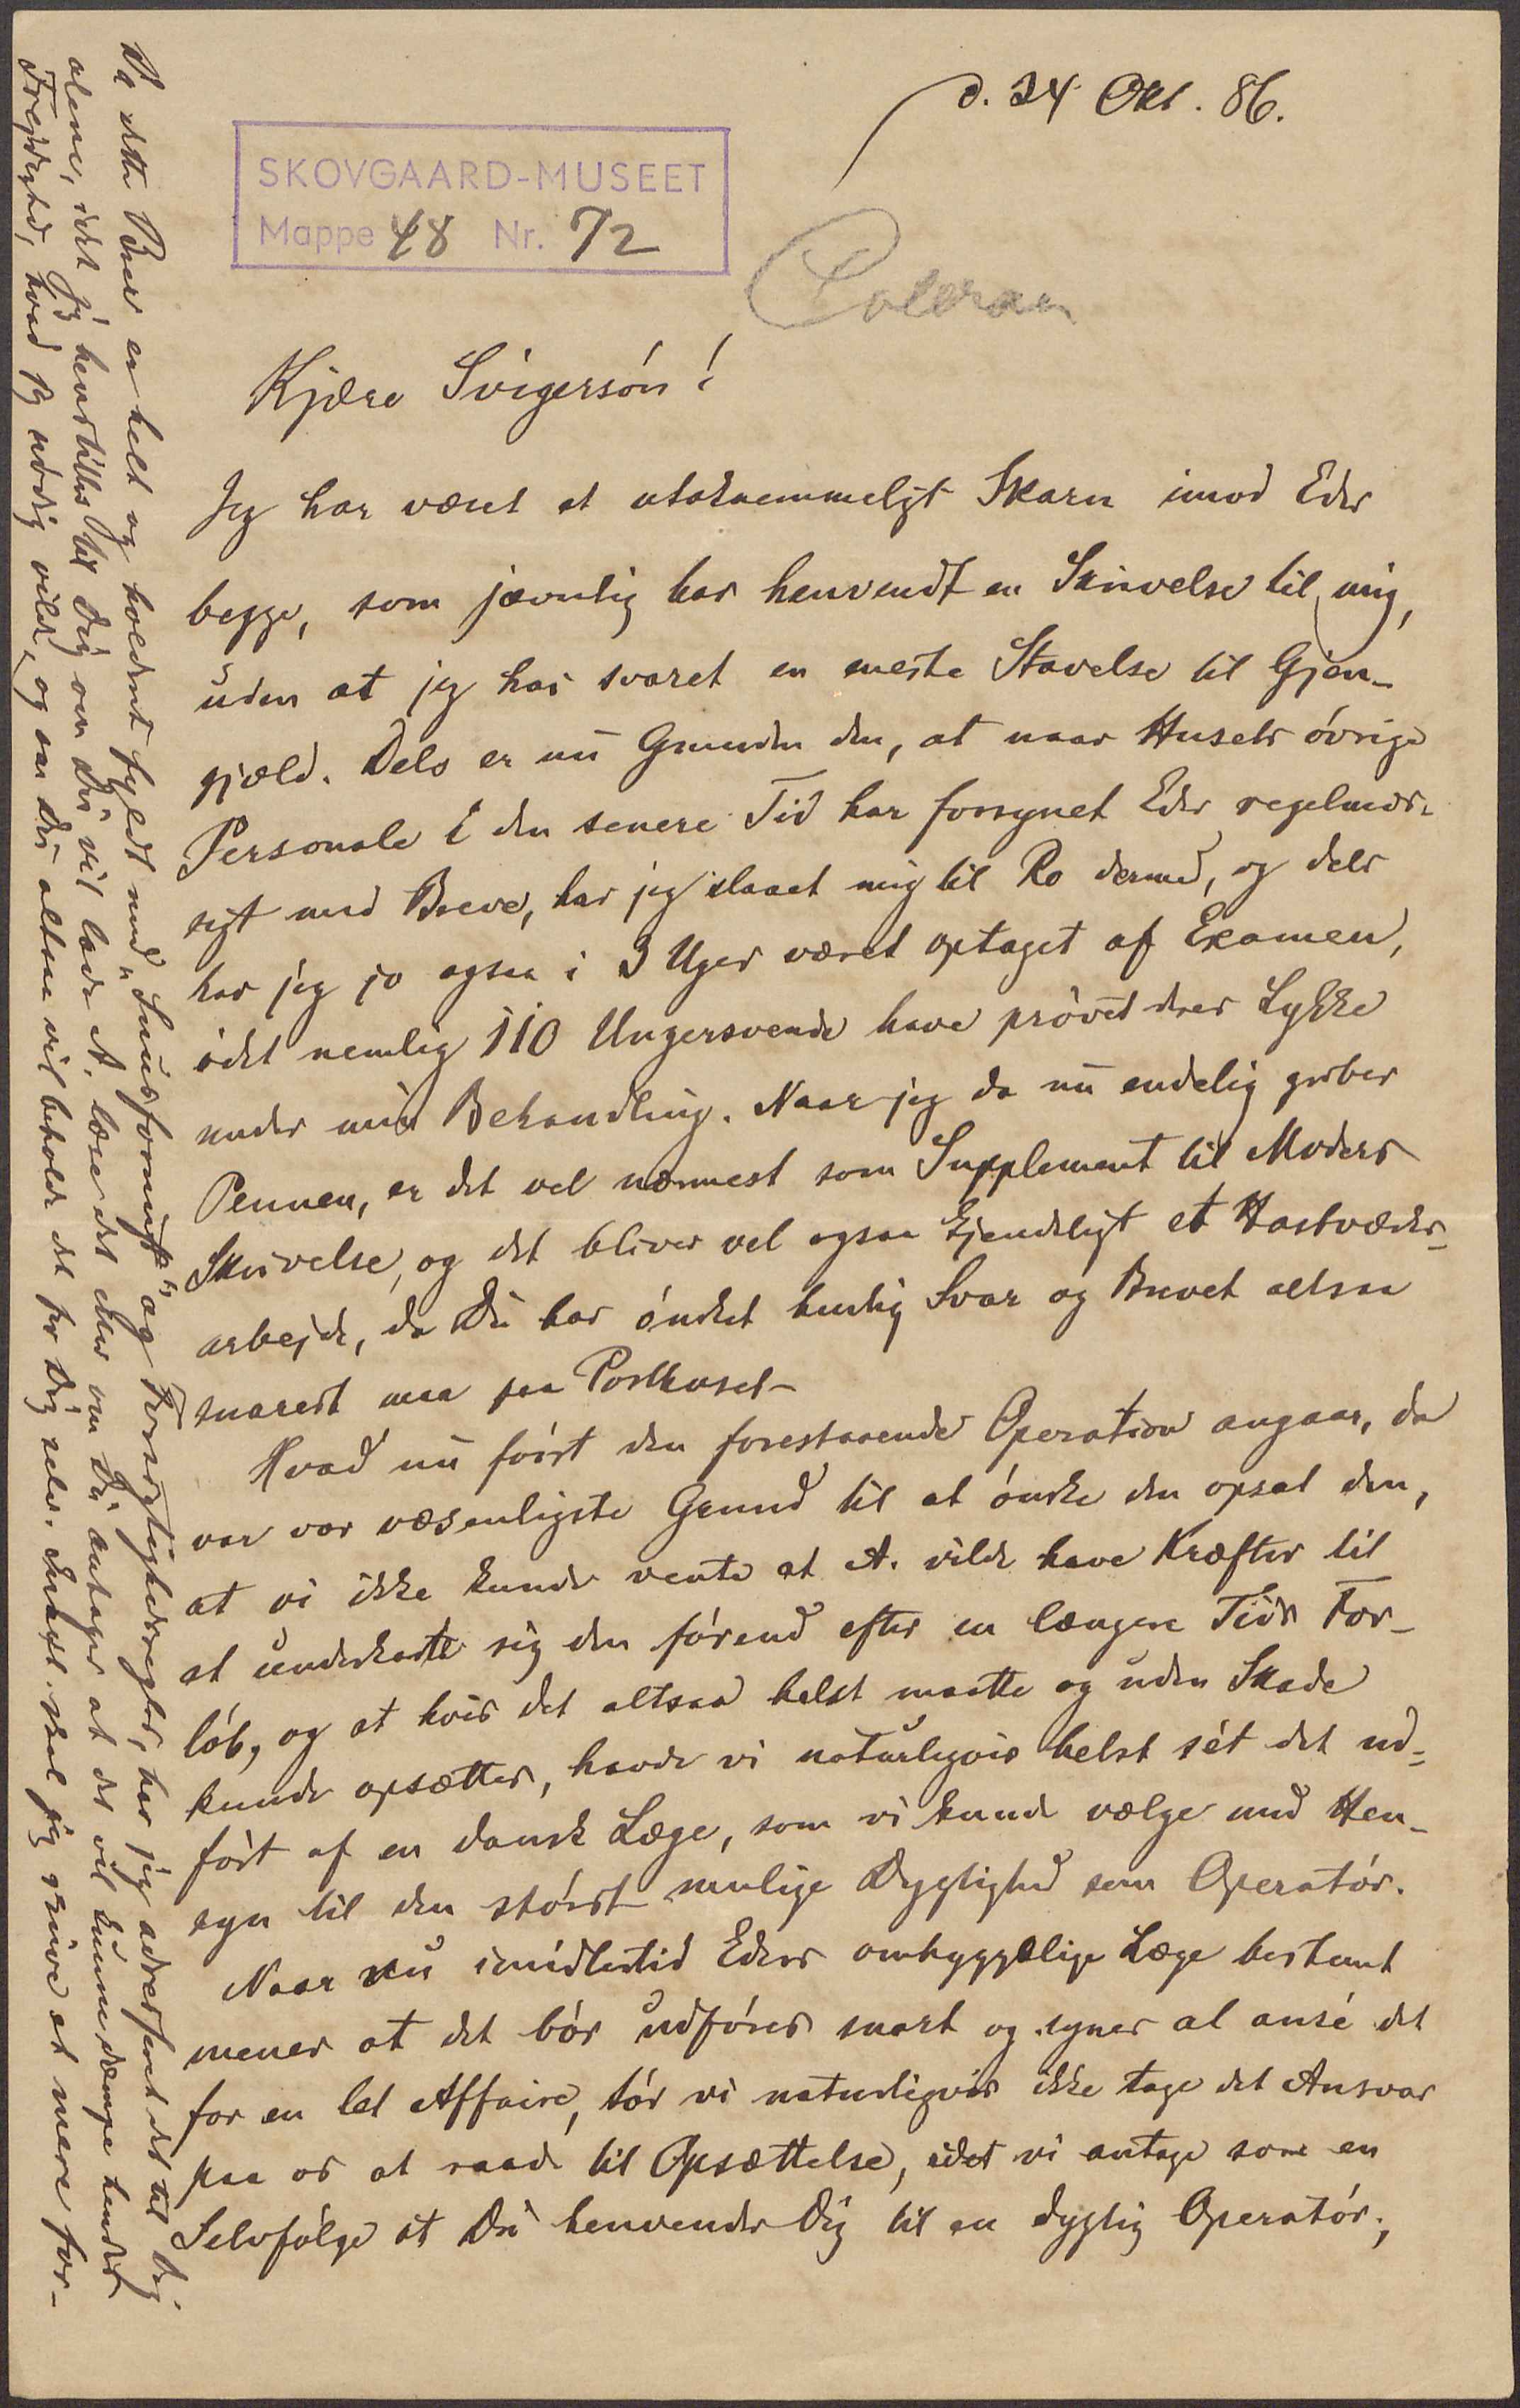 d. 24 Okt. 86.
SKOVGAARD-MUSEET
Mappe 48 Nr. 72
Kjære Svigersón!
Jeg har været et utaknemmeligt Skarn imod Eder
begge, som jævnlig har henvendt en Skrivelse til mig,
uden at jeg har svaret en eneste Stavelse til Gjen-
gjæld. Dels er nu Grunden den, at naar Husets óvrige
Personale i den senere Tid har forsynet Eder regelmæs-
sigt med Breve, har jeg slaaet mig til Ro dermed, og dels
har jeg jo ogsaa i 3 Uger været optaget af Examen,
idet nemlig 110 Ungersvende have próvet deres Lykke
under min Behandling. Naar jeg da nu endelig griber
Pennen, er det vel nærmest som Supplement til Moders
Skrivelse, og det bliver vel ogsaa kjendeligt et Hastværks-
arbejde, da Du har ónsket hurtig Svar og Brevet altsaa
snarest maa paa Posthuset-
Hvad nu fórst den forestaaende Operation angaar, da
var vor væsenligste Grund til at ónske den opsat den,
at vi ikke kunde vente at A. vilde have Kræfter til
at underkaste sig den fórend efter en længere Tids For-
lób, og at hvis det altsaa helst maatte og uden Skade
kunde opsættes, havde vi naturligvis helst sét det ud-
fórt af en dansk Læge, som vi kunde vælge med Hen-
syn til den stórst mulige Dygtighed som Operatór.
Naar nu imidlertid Eders omhyggelige Læge bestemt
mener at det bór udfóres snart og synes at ansé det
for en let Affaire, tór vi naturligvis ikke tage det Ansvar
paa os at raade til Opsættelse, idet vi antage som en
Selvfólge at Du henvender Dig til en dygtig Operatór;
Da dette Brev er helt og holdent fyldt med "Snusfornuft" og Forsigtighedsregler, har jeg adresseret det til Dig
alene, idet jeg henstiller til Dig om Du vil lade A. læse det eller om Du antager at det vil kunne dæmpe hendes
Frejdighed, hvad jeg nódig vilde, og om Du altsaa vil beholde det for Dig selv. Snart skal jeg skrive et mere for-